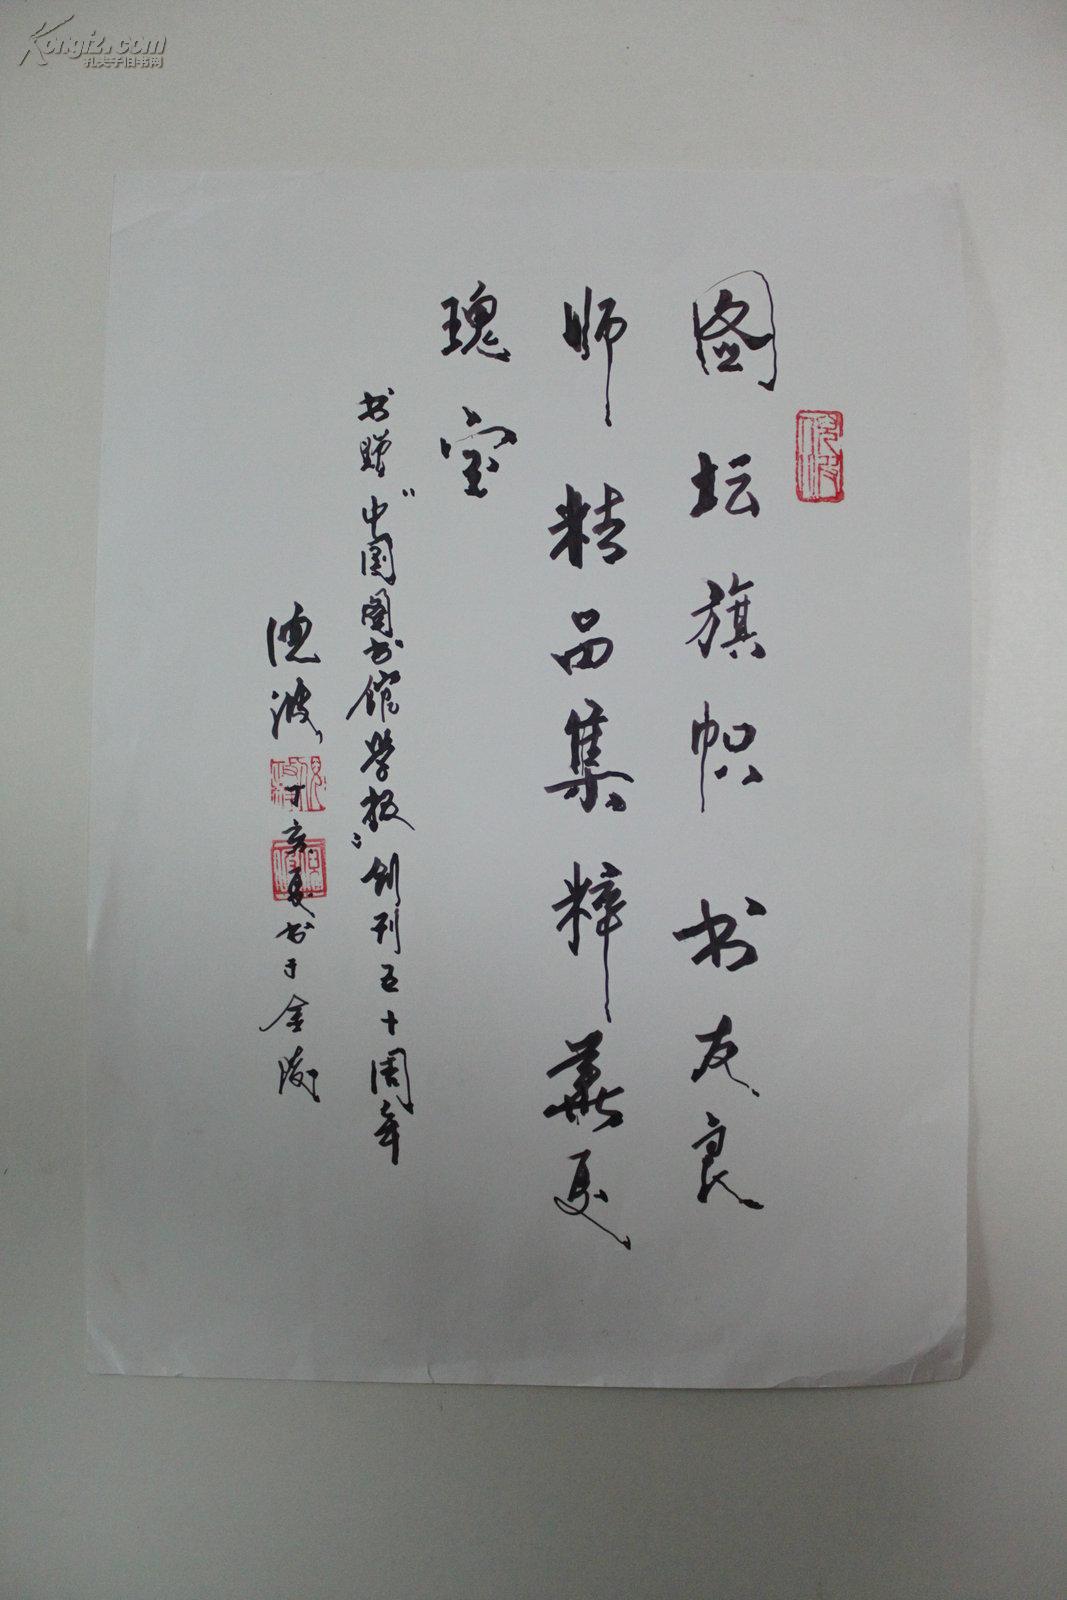 Kongfz.com
孔夫子旧书网
图坛旗帜书友良
师精品集粹华夏
瑰宝
书赠“中国图书馆学报”创刊五十周年
德波丁亥夏书于金陵